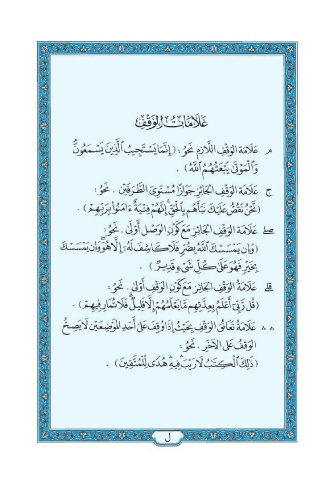 عَلَامَاتُ الوَقْفِ
مـ عَلَامَة الوَقْفِ اللَّازِمِ نَحْوُ : ( إِنَّمَا يَسْتَجِيبُ الَّذِينَ يَسْمَعُونَۘ
وَالْمَوْتَىٰ يَبْعَثُهُمُ اللَّهُ ) .
ج عَلَامَة الوَقْفِ الجَائِزِ جَوَازًا مُسْتَوِيَ الطَّرَفَيْنِ . نَحْوُ :
( نَحْنُ نَقُصُّ عَلَيْكَ نَبَأَهُم بِالْحَقِّۚ إِنَّهُمْ فِتْيَةٌ ءَامَنُوا بِرَبِّهِمْ ) .
صلى عَلَامَة الوَقْفِ الجَائِزِ مَعَ كَوْنِ الوَصْلِ أَوْلَى . نَحْوُ :
( وَإِن يَمْسَسْكَ اللَّهُ بِضُرٍّ فَلَا كَاشِفَ لَهُ إِلَّا هُوَۖ وَإِن يَمْسَسْكَ
بِخَيْرٍ فَهُوَ عَلَىٰ كُلِّ شَيْءٍ قَدِيرٌ ) .
قلى عَلَامَةُ الوَقْفِ الجَائِزِ مَعَ كَوْنِ الوَقْفِ أَوْلَى . نَحْوُ :
( قُل رَّبِّي أَعْلَمُ بِعِدَّتِهِم مَّا يَعْلَمُهُمْ إِلَّا قَلِيلٌۗ فَلَا تُمَارِ فِيهِمْ ) .
∴ ∴ عَلَامَةُ تَعَانُقِ الوَقْفِ بِحَيْثُ إِذَا وُقِفَ عَلَى أَحَدِ المَوْضِعَيْنِ لَا يَصِحُّ
الوَقْفُ عَلَى الآخَرِ . نَحْوُ :
( ذَٰلِكَ الْكِتَٰبُ لَا رَيْبَۛ فِيهِۛ هُدًى لِّلْمُتَّقِينَ ) .
ل